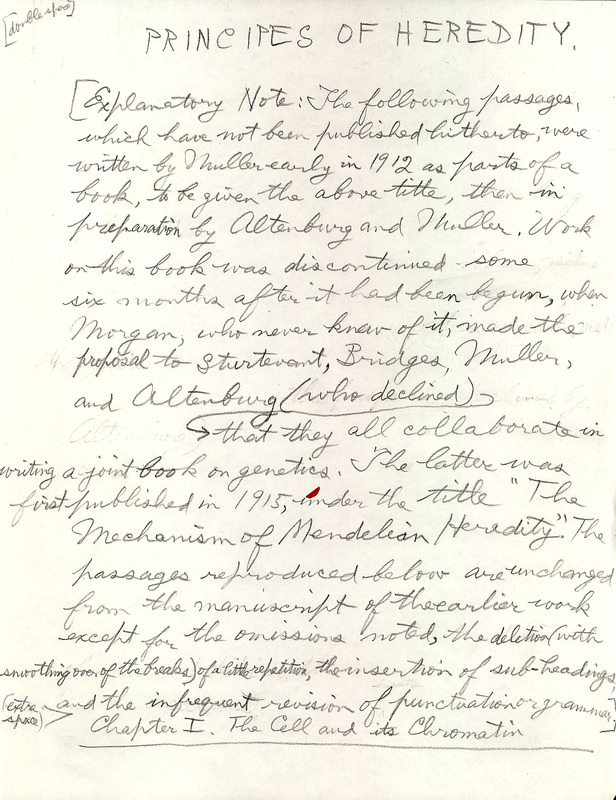 [double space]
PRINCIPES OF HEREDITY.
[Explanatory Note: The following passages,
which have not been published hitherto, were
written by Muller early in 1912 as parts of a
book, to be given the above title, then in
preparation by Altenburg and Muller. Work
on this book was discontinued some
six months after it had been begun, when
Morgan, who never knew of it, made the
proposal to Sturtevant, Bridges, Muller,
and Altenburg (who declined)
that they all collaborate in
writing a joint book on genetics. The latter was
first published in 1915, under the title "The
Mechanism of Mendelian Heredity". The
passages reproduced below are unchanged
from the manuscript of the earlier work
except for the omissions noted, the deletion (with
smoothing over of the breaks) of a little repetition, the insertion of sub-headings
and the infrequent revision of punctuation or grammar.]
(extra space)
Chapter I. The Cell and its Chromatin